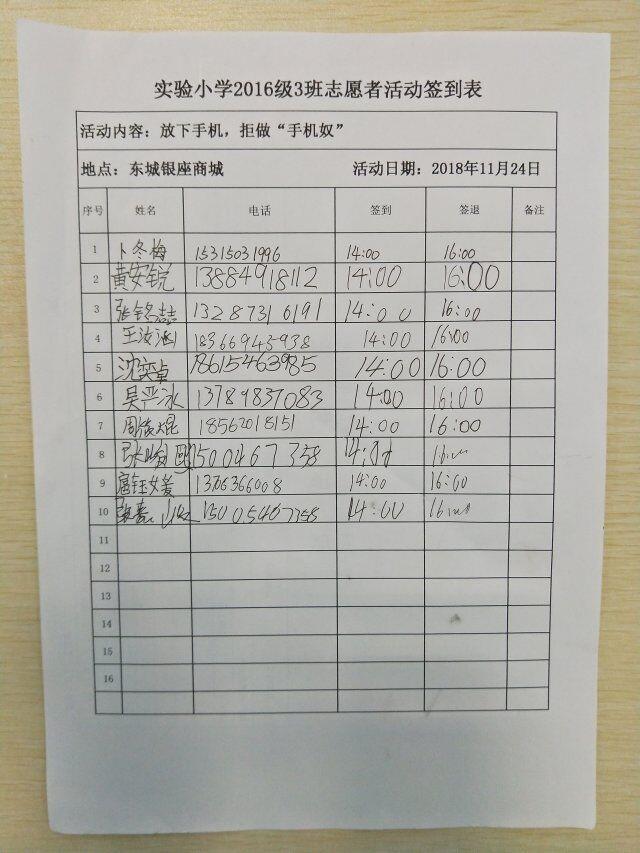 实验小学2016级3班志愿者活动签到表
活动内容：放下手机，拒做“手机奴”
地点：东城银座商城 活动日期：2018年11月24日
序号 姓名 电话 签到 签退 备注
1 卜冬梅 15315031996 14:00 16:00
2 黄安锐 13884918112 14:00 16:00
3 张铭喆 13287316191 14:00 16:00
4 王汝涵 18366943938 14:00 16:00
5 沈奕卓 18615463985 14:00 16:00
6 吴严冰 13789837083 14:00 16:00
7 周俊焜 18562018151 14:00 16:00
8 14:00
9 14:00 16:00
10 15005467358 14:00
11
12
13
14
15
16